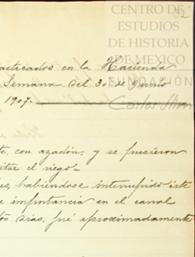 CENTRO DE
ESTUDIOS
DE HISTORIA
DE MEXICO
FUNDACIÓN
Carlos Slim
acticados en la Hacienda
Semana del 3 de Junio
1907.
te, con azadón, y se hicieron
itar el riego.-
habiéndose interrumpido éste
importancia en el canal
días, fué aproximadamente